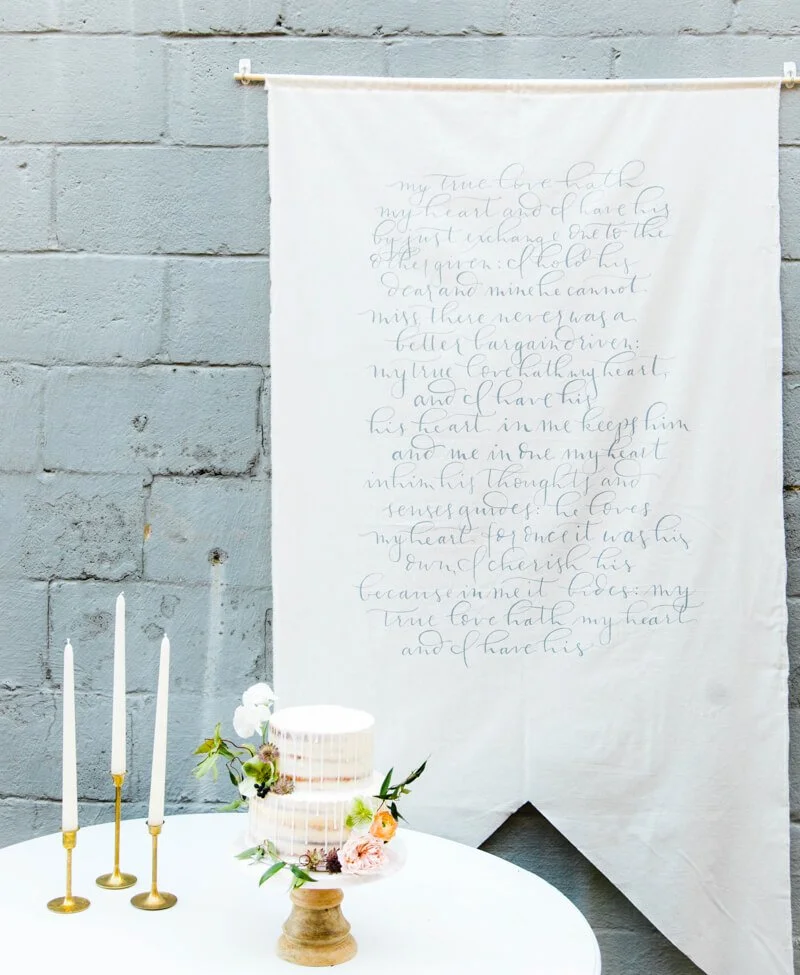 my true love hath
my heart and I have his
by just exchange one to the
other given: I hold his
dear and mine he cannot
miss, there never was a
better bargain driven:
my true love hath my heart,
and I have his
his heart in me keeps him
and me in one my heart
in him his thoughts and
senses guides: he loves
my heart for once it was his
own, I cherish his
because in me it bides: my
true love hath my heart
and I have his